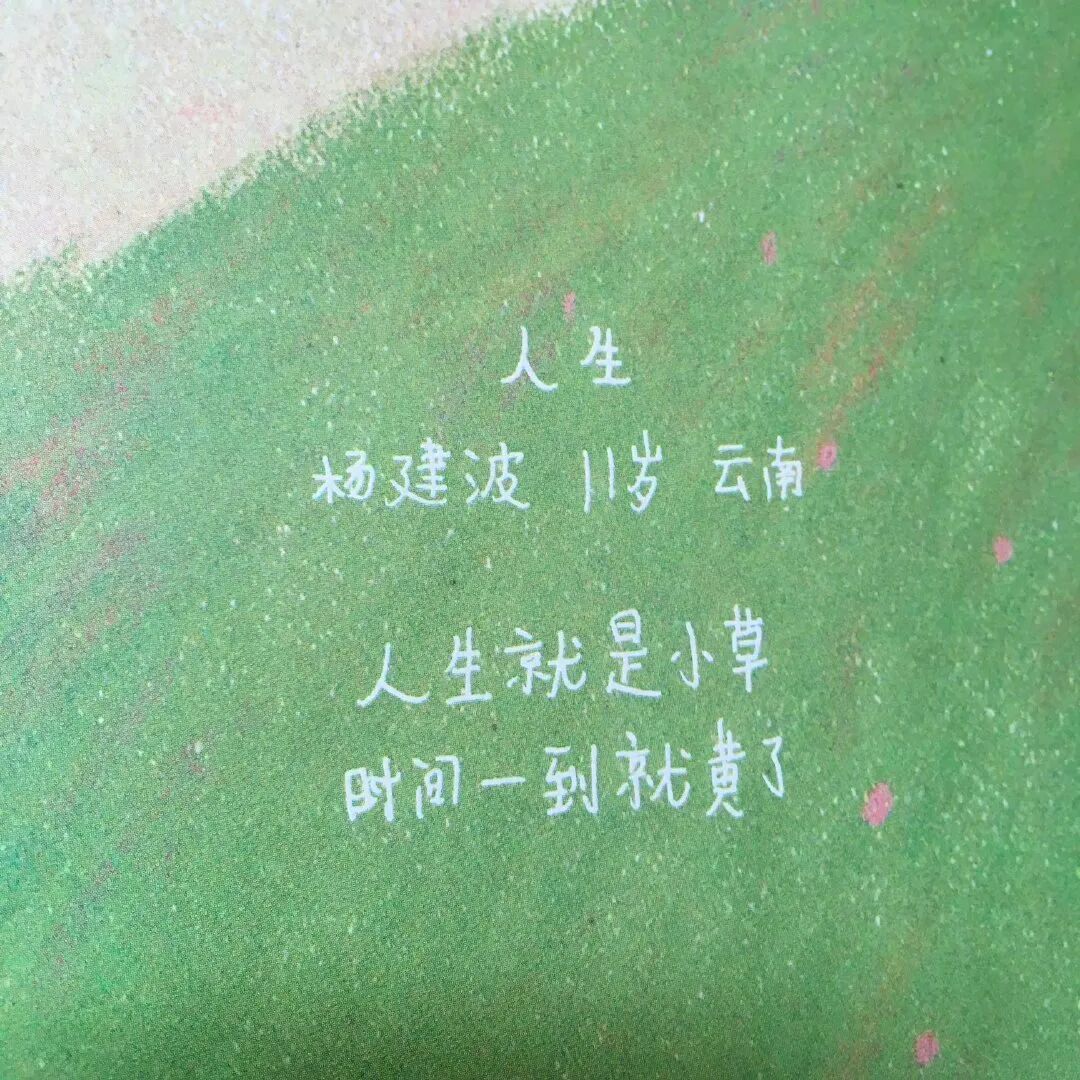 人生
杨建波 11岁 云南
人生就是小草
时间一到就黄了